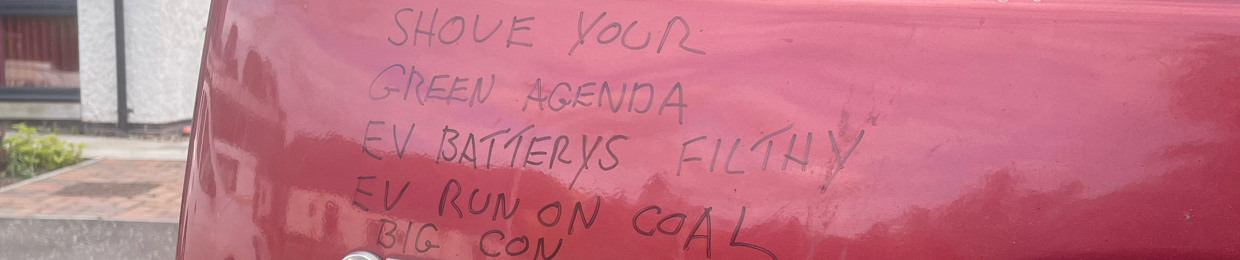 SHOVE YOUR
GREEN AGENDA
EV BATTERYS FILTHY
EV RUN ON COAL
BIG CON